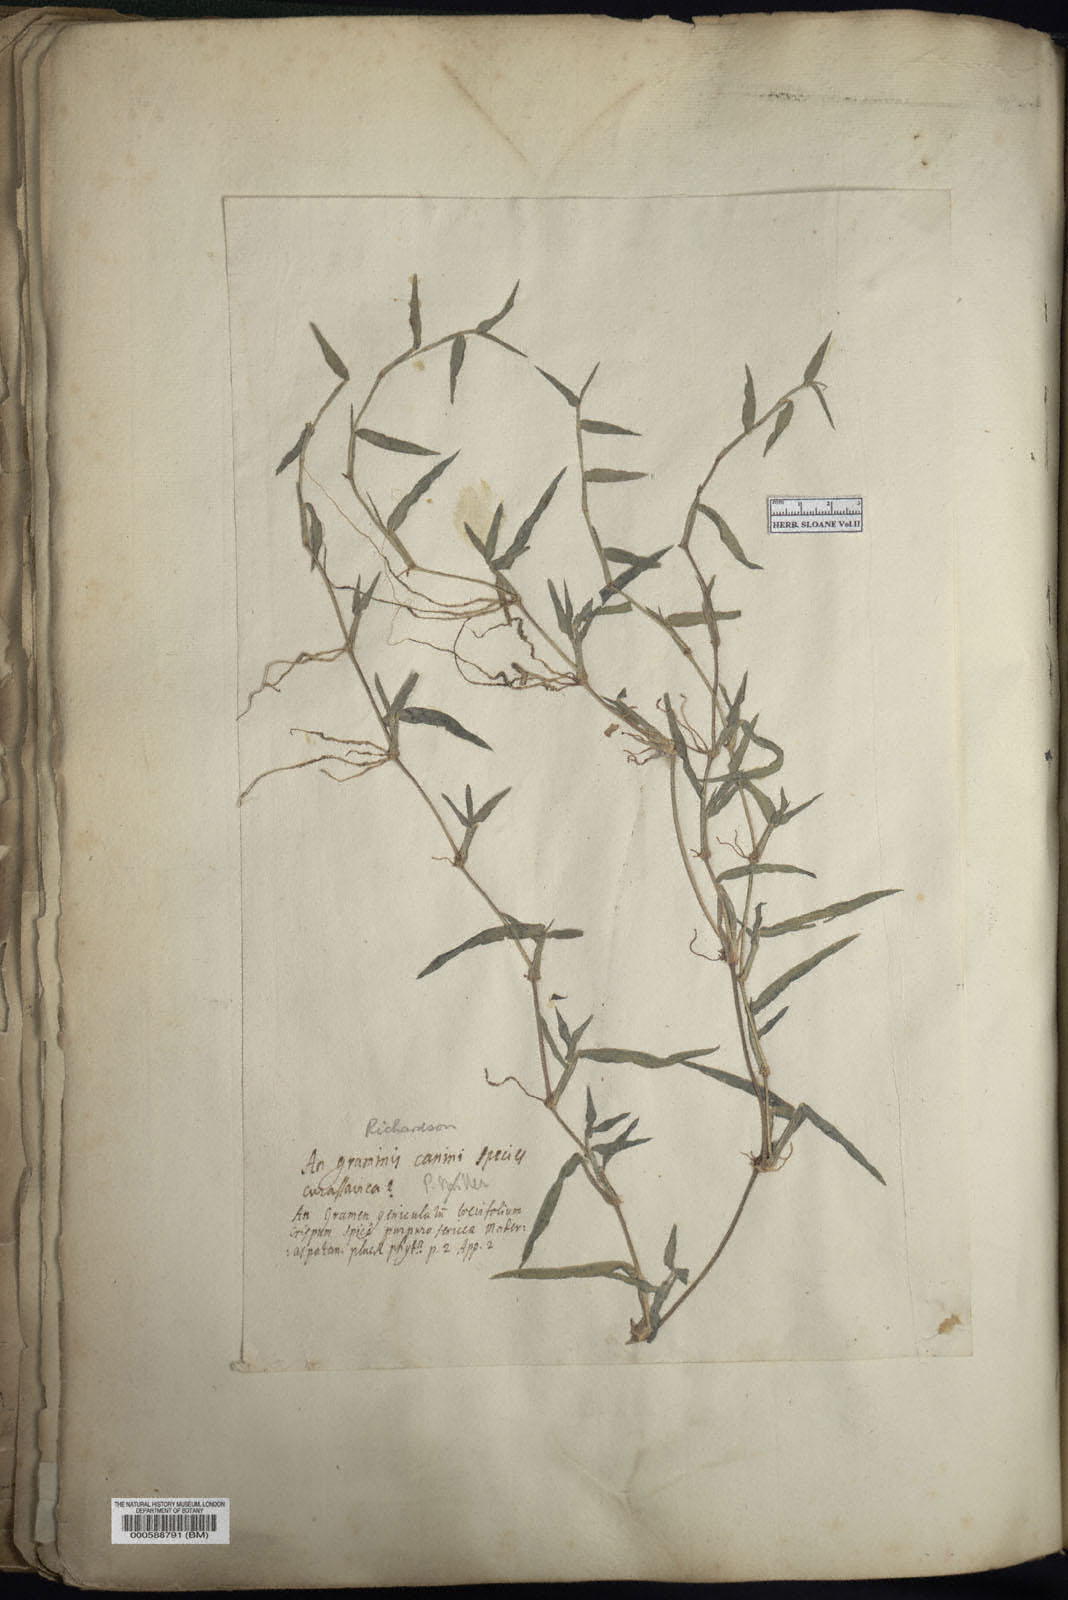 mm 1 2 3
HERB. SLOANE Vol.II
Richardson
An graminis canini species
curassavica?
An Gramen geniculatū brevifolium
crispum spicâ purpuro sericea Mader:
:aspatan: pluck phytᵃ p. 2 App. 2
THE NATURAL HISTORY MUSEUM, LONDON
DEPARTMENT OF BOTANY
000588791 (BM)